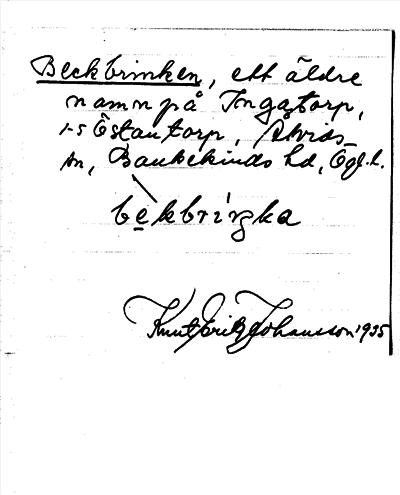 Beckbrinken, ett äldre
namn på Ingatorp,
1-5 Östantorp, Åtvids
sn, Bankekinds hd, Ögl. l.
bekbriŋka
Knut Fritz Johansson 1935